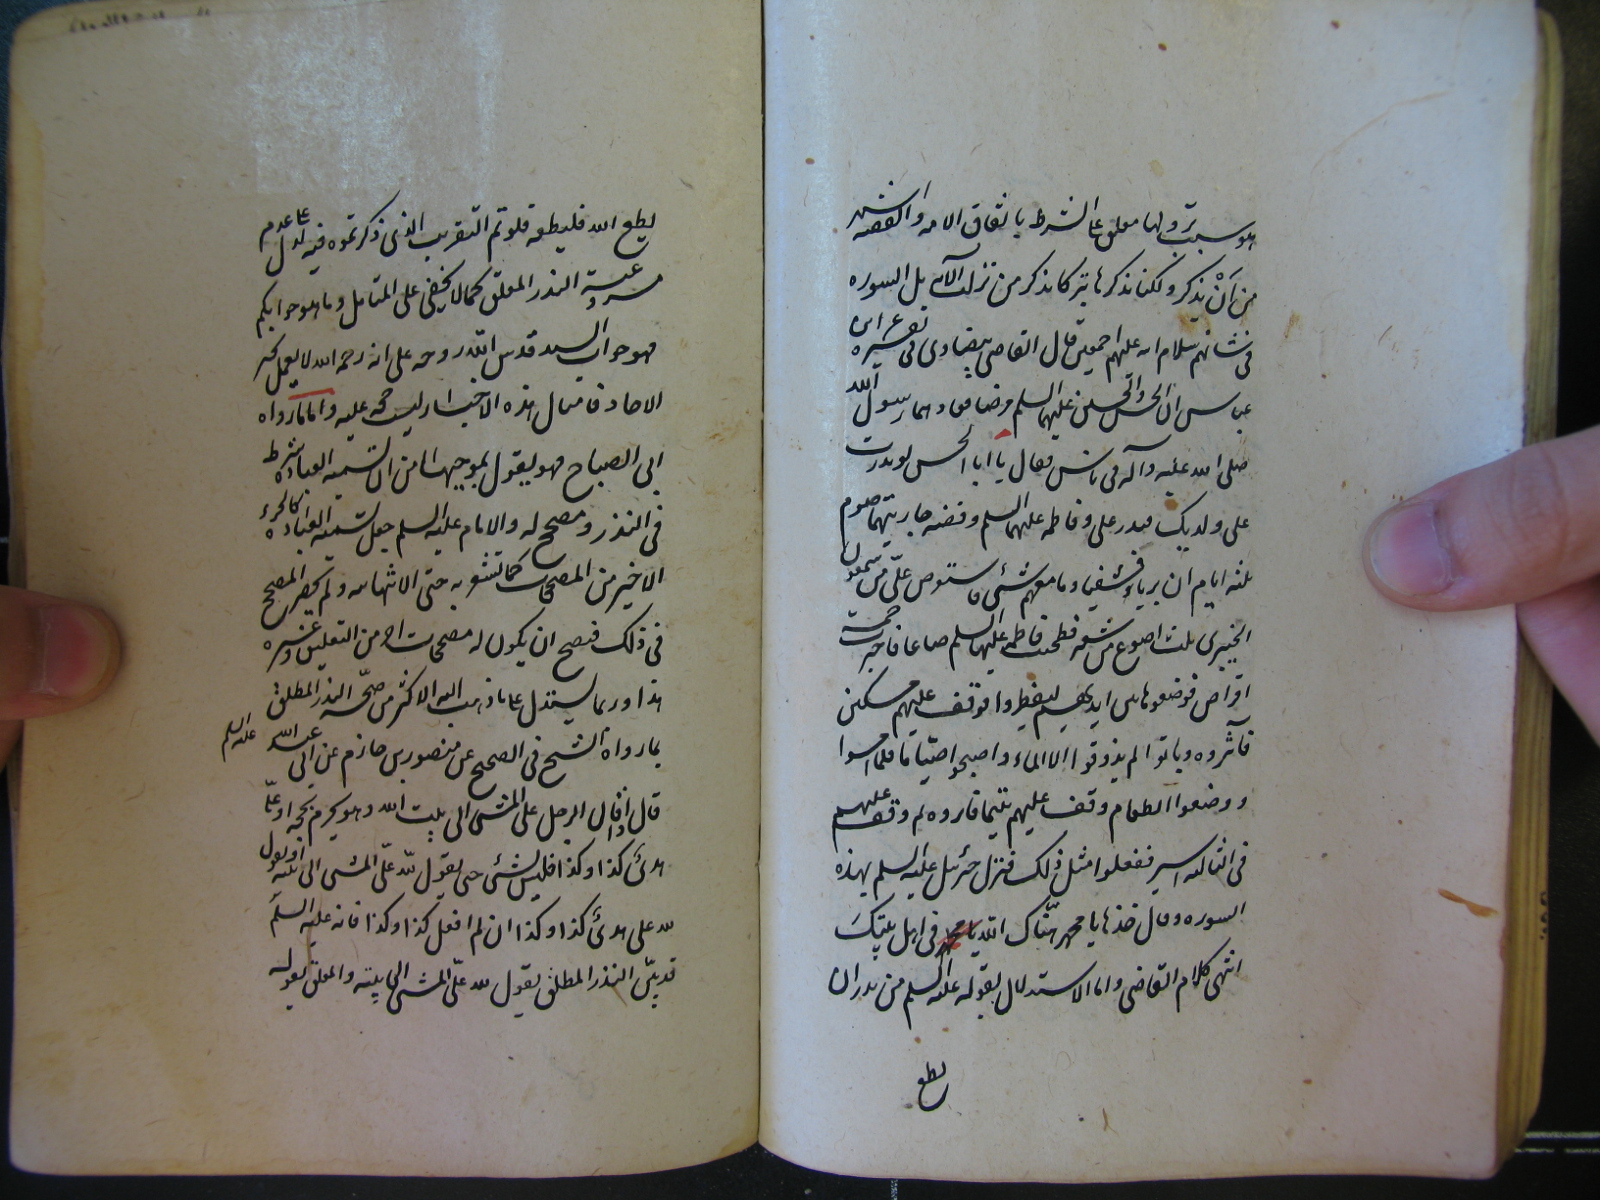 هو سبب نزولها معلق على الشرط باتفاق الامه والقصه اشهر
من اَنْ يذكر ولكنا نذكرها تبركا بذكر من نزلت الآيه بل السوره
فى شانهم سلام الله عليهم اجمعين قال القاضى البيضاوى فى تفسيره عن ابن
عباس ان الحسن والحسين عليهما السلم مرضا فعادهما رسول الله
صلى الله عليه وآله فى ناس فقال يا ابا الحسن لو نذرت
على ولديك فنذر على وفاطمه عليهما السلم وفضه جاريتهما صوم
ثلثه ايام ان برياء فشفيا وما معهم شئ فاستقرض علىّ من شمعون
الخيبرى ثلث اصوع من شعير فطحنت فاطمه عليها السلم صاعا فاختبزت خمسة
اقراص فوضعوها بين ايديهم ليفطروا فوقف عليهم مسكين
فآثروه وباتوا لم يذوقوا الا الماء واصبحوا صيّاما فلما امسوا
ووضعوا الطعام وقف عليهم يتيم فاثروه ثم وقف عليهم
فى الثالثه اسير ففعلوا مثل ذلك فنزل جبرئيل عليه السلم بهذه
السوره وقال خذها يا محمد هنّاك الله فى اهل بيتك
انتهى كلام القاضى واما الاستدلال بقوله عليه السلم من نذر ان
يطع
يطع الله فليطعه فلو تم التقريب الذى ذكرتموه فيه لدل على عدم
مشروعية النذر المعلق كما لا يخفى على المتامل وما هو جوابكم
فهو جواب السيد قدس الله روحه على انه رحمه الله لا يعمل بخبر
الاحاد فامثال هذه الاخبار ليست حجه عليه واما ما رواه
ابى الصباح فهو يقول بموجبها من ان تسميه العباده شرط
فى النذر ومصحح له والامام عليه السلم جعل تسميه العباده كالجزء
الاخير من المصححات كما تشعر به حتى الانتهائيه ولم يحصر المصحح
فى ذلك فيصح ان يكون له مصححات اخر من التعليق وغيره
هذا وربما يستدل على ما ذهب اليه الاكثر من صحّه النذر المطلق
بما رواه الشيخ فى الصحيح عن منصور بن حازم عن ابى عبد الله عليه السلم
قال اذا قال الرجل على المشى الى بيت الله وهو محرم بحجه او علىّ
هدىٌ كذا وكذا فليس بشئ حتى يقول لله علىّ المشى الى بيته او يقول
لله على هدىٌ كذا وكذا ان لم افعل كذا وكذا فانه عليه السلم
قد بيّن النذر المطلق بقول لله علىّ المشى الى بيته والمعلق بقوله